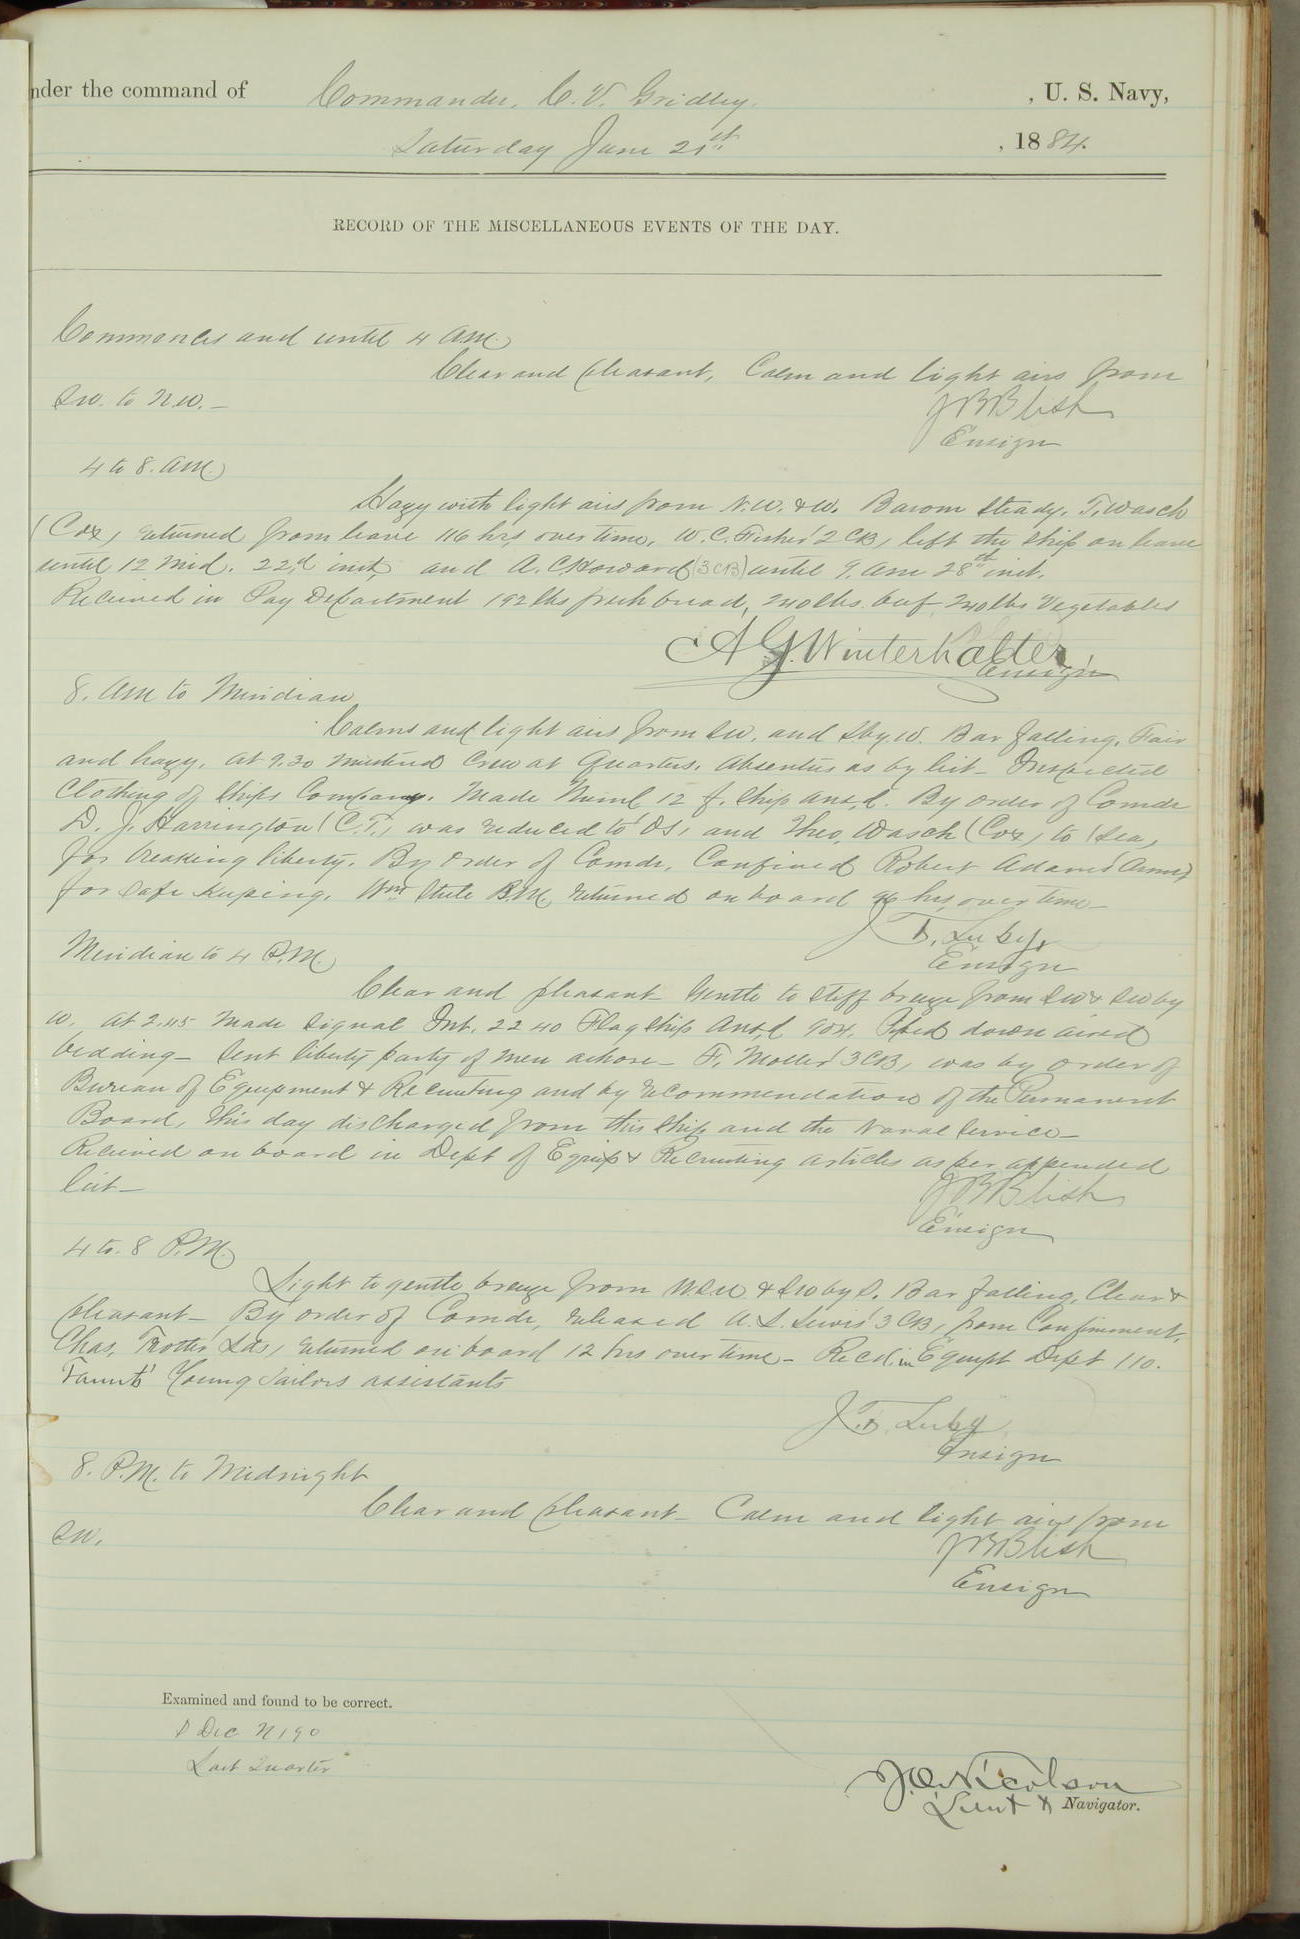 nder the command of Commander, C. V. Gridley, , U. S. Navy,
Saturday June 21st , 1884.
RECORD OF THE MISCELLANEOUS EVENTS OF THE DAY.
Commences and until 4 AM.
Clear and pleasant, Calm and light airs from
SW. to N.W. –
J B Blish
Ensign
4 to 8. AM.
Hazy with light airs from N.W. & W. Barom steady. T. Wasch
(Cox) returned from leave 116 hrs over time. W. C. Fisher (2 CB) left the ship on leave
until 12 Mid. 22d inst, and A. C. Howard (3 CB) until 9. Am 28th inst.
Received in Pay Department 192 lbs fresh bread, 240 lbs. beef 240 lbs Vegetables
A G. Winterhalter
Ensign
8. AM to Meridian
Calms and light airs from SW. and S by W. Bar falling. Fair
and hazy. At 9.30 mustered Crew at Quarters. Absentees as by list – Inspected
Clothing of Ships Company. Made Numl 12 f. ship ans,d. By order of Comdr
D. J. Harrington (C.T.) was reduced to OS, and Theo, Wasch (Cox) to (Sea)
for breaking liberty. By order of Comdr, Confined Robert Adams
for safe keeping. Wm Stute B.M. returned on board 96 hrs, over time –
J. F. Luby,
Ensign
Meridian to 4 P.M.
Clear and pleasant – Gentle to stiff breeze from SW & SW by
W. At 2.45 made signal Int. 22 40 Flagship Ans,d 904. Piped down aired
bedding – Sent liberty party of men ashore – F. Moller (3 CB) was by order of
Bureau of Equipment & Recruiting and by recommendation of the Permanent
Board, this day discharged from this ship and the Naval Service –
Received on board in Dept of Equip & Recruiting articles as per appended
list –
J B Blish
Ensign
4 to. 8 P.M.
Light to gentle breeze from W.S.W. & SW by S. Bar falling, Clear &
pleasant – By order of Comdr, released A. S. Lewis (3 CB) from Confinement.
Chas. Trotter Lds, returned on board 12 hrs over time – Recd. in Equipt Dept 110.
Taunts' Young Sailors assistants
J. F. Luby
Ensign
8. P.M. to Midnight
Clear and pleasant – Calm and light airs from
SW.
J B Blish
Ensign
Examined and found to be correct.
Dec N 190
Last Quarter
Nicolson
Lieut & Navigator.